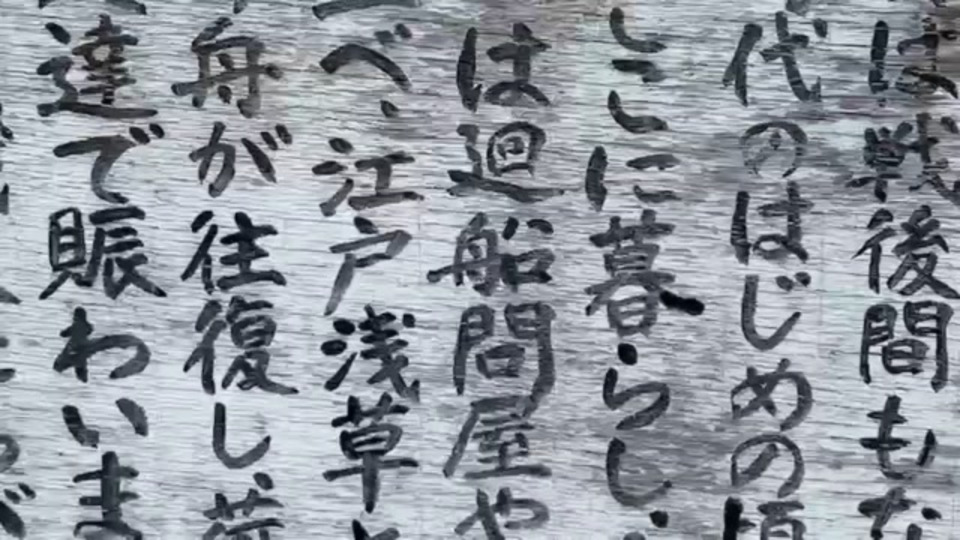 は戦後間もな
代のはじめの頃
ここに暮らし
は廻船問屋や
べ、江戸浅草と
舟が往復し、荷
達で賑わいま